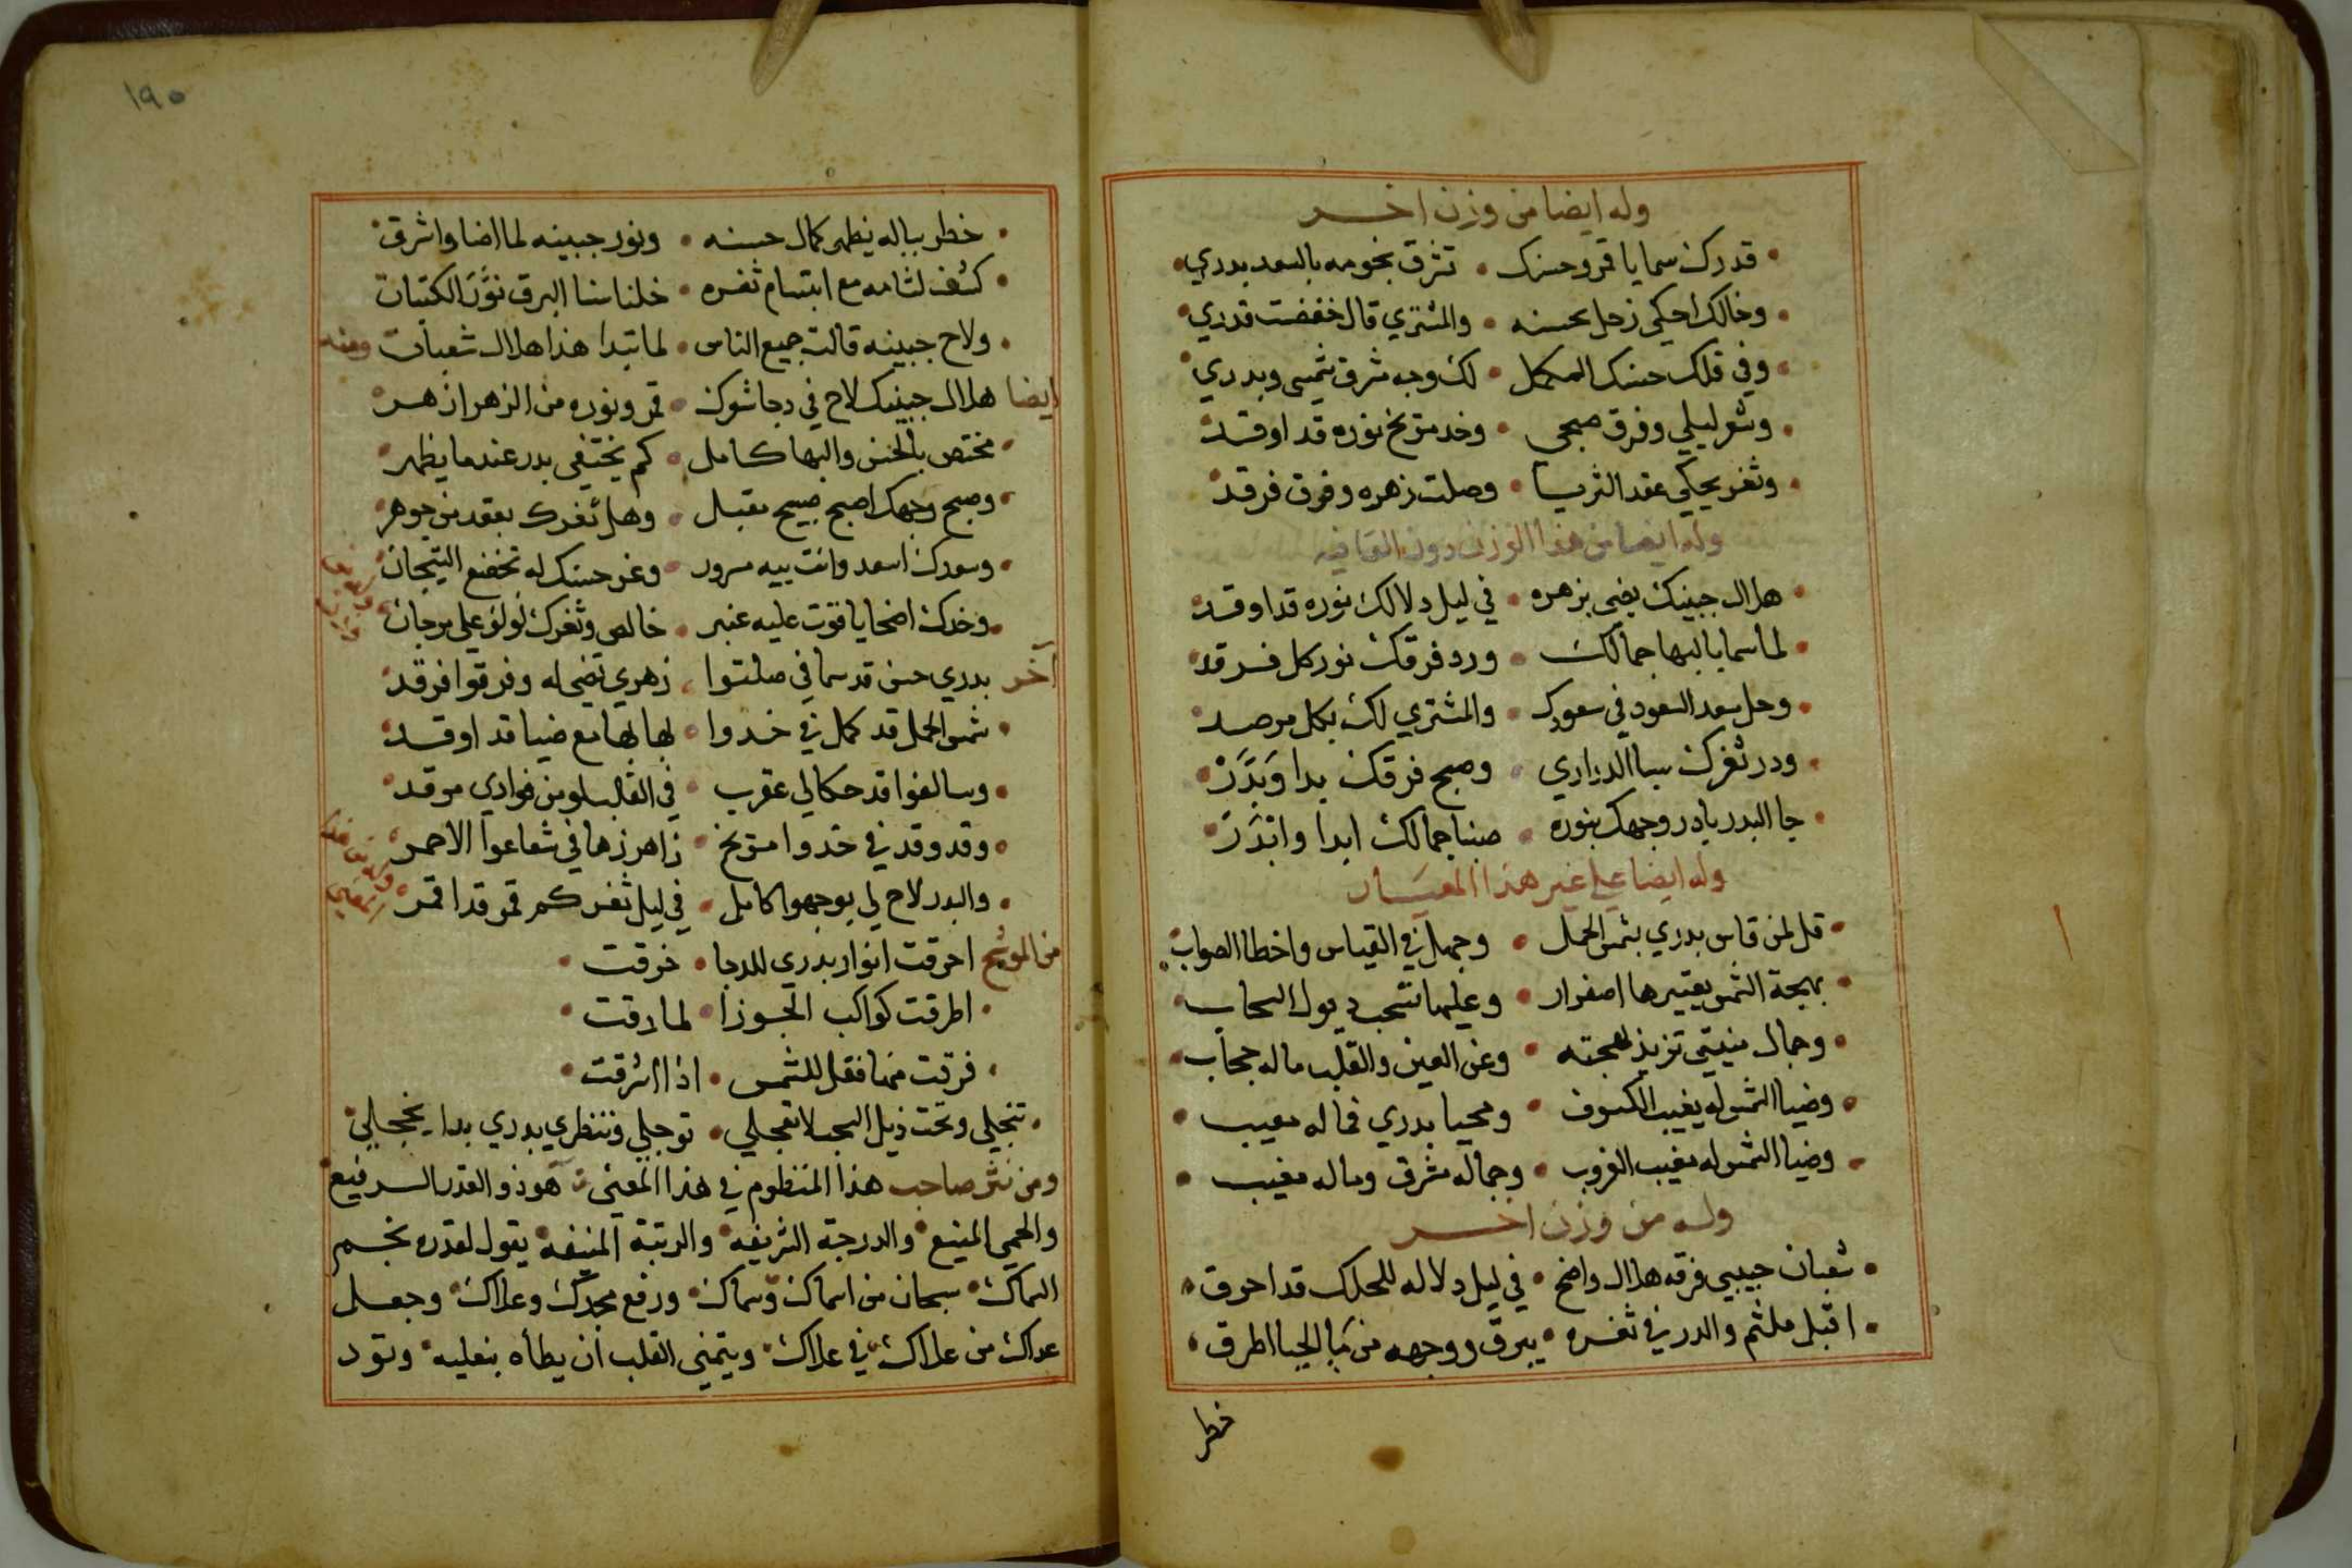 وله ايضا من وزن اخر
قدرك سما يا قمر وحسنك • تشرق نجومه بالسعد بدري
وخالك احكي زحل بحسنه • والمشتري قال خفضت قدري
وفي فلك حسنك المكمل • لك وجه مشرق شمسي وبدري
وشعر ليلي وفرق صبحي • وخد مريخ نوره قد اوقد
وثغر يحكي عقد الثريا • وصلت زهره وفرق فرقد
وله ايضا من هذا الوزن دون القافيه
هلال جبينك يضي بزهره • في ليل دلالك نوره قد اوقد
لما سما بالبها جمالك • ورد فرقك نور كل فرقد
وحل سعد السعود في سعودك • والمشتري لك بكل مرصد
ودر ثغرك سبا الدراري • وصبح فرقك بدا وبدر
جا البدر يا در وجهك بنوره • ضنا جمالك ابدا وانذر
وله ايضا علي غير هذا المعيار
قل لمن قاس بدري بشمس الحمل • وجهل في القياس واخطا الصواب
بهجة الشمس يعتيرها اصفرار • وعليها تنسحب ديول السحاب
وجمال منيتي تزيد بهجته • وعن العين والقلب ماله حجاب
وضيا الشمس له يغيب الكسوف • ومحيا بدري فما له معيب
وضيا الشمس له مغيب الغروب • وجماله مشرق وماله مغيب
وله من وزن اخر
شعبان حبيبي فرقه هلال واضح • في ليل دلاله للحلك قد احرق
اقبل ملثم والدر في ثغره • يبرق ووجهه من الحيا اطرق
خطر
١٩٠
خطر بباله يظهر كمال حسنه • ونور جبينه لما اضا واشرق
كشف لثامه مع ابتسام ثغره • خلنا سنا البرق نوَّر الكتبان
ولاح جبينه قالت جميع الناس • لما تبدا هذا هلال شعبان ومنه
ايضا هلال جبينك لاح في دجا شعرك • قمر ونوره من الزهر ازهر
مختص بالحسن والبها كامل • كم يختفي بدر عندما يظهر
وصبح وجهك اصبح صبيح مقبل • وهل ثغرك بعقد من جوهر
وسعدك اسعد وانت بيه مسرور • وعز حسنك له تخضع التيجان
وخدك اضحا ياقوت عليه عنبر • خالص وثغرك لولو علي مرجان
آخر بدري حسن قد سما في صلتوا • زهري تضي له وفرقوا فرقد
شمس الحمل قد كمل في خدوا • لها بها مع ضيا قد اوقد
وسالفوا قد حكا لي عقرب • في القلب لو من فوادي موقد
وقد وقد في خدوا مريخ • زاهر زها في شعاعوا الاحمر
والبدر لاح لي بوجهوا كامل • في ليل ثغركم قمر قد اقمر
من الموشح احرقت انوار بدري للدجا • خرقت
اطرقت كواكب الجوزا • لما رقت
فرقت منها فقل للشمس • اذا اشرقت
تنجلي وتحت ذيل السحب لا تعجلي • توجلي وتنظري بدري بدا يخجلي
ومن نثر صاحب هذا المنظوم في هذا المعني هو ذو القدر الرفيع
والحمي المنيع • والدرجة الشريفه • والرتبة المنيفه • يقول لقدره نجم
السماك • سبحان من اسماك وسماك • ورفع مجدك وعلاك • وجعل
عداك من علاك في علاك • ويتمني القلب ان يطأه بنعليه • وتود